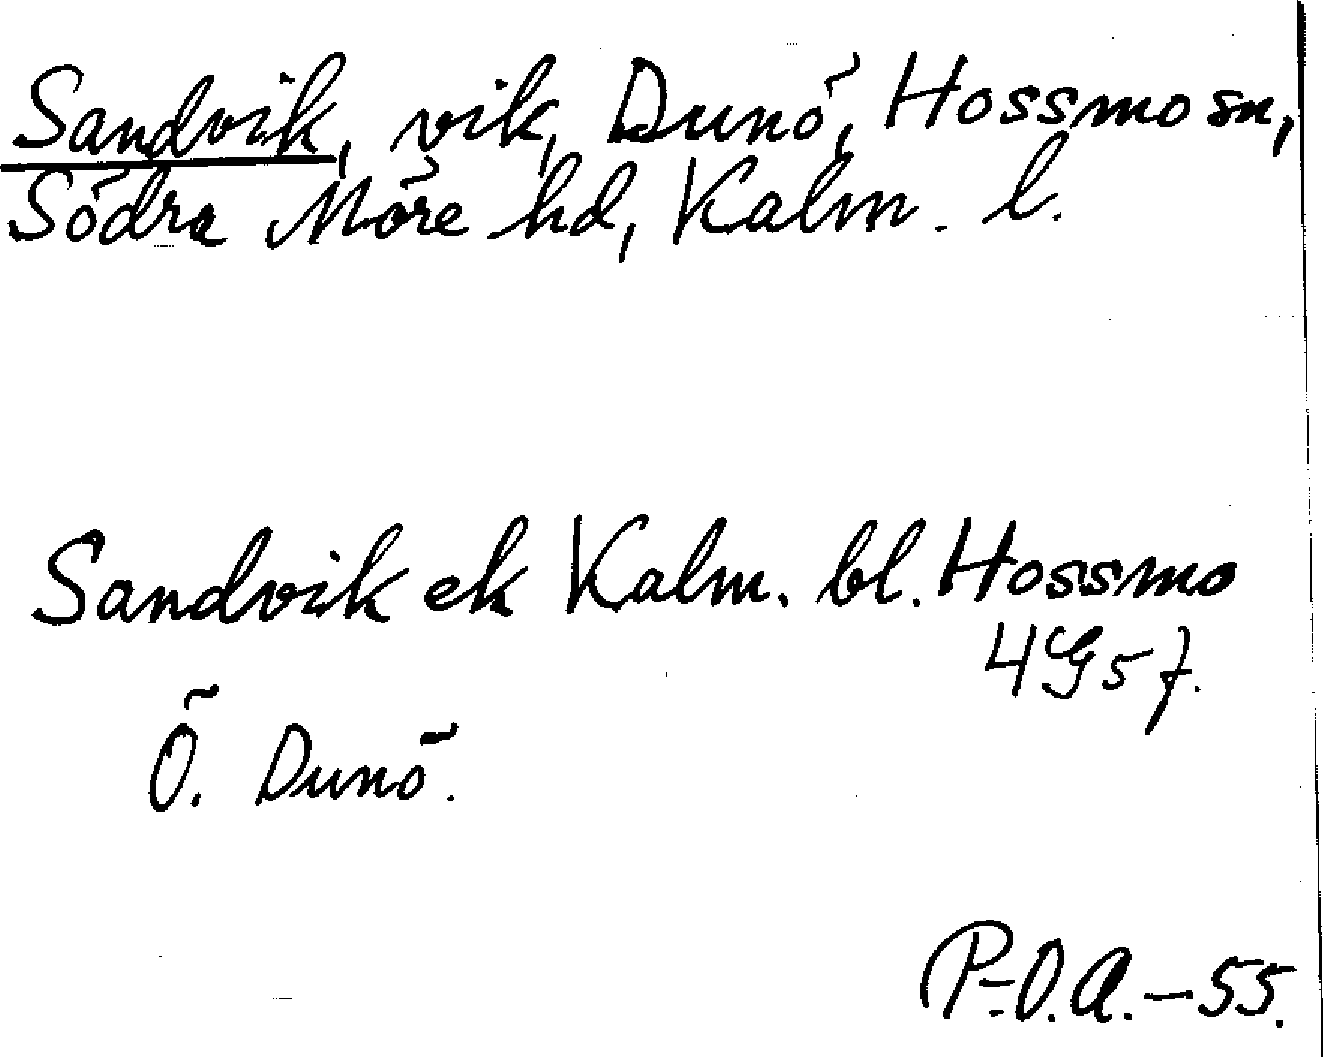 Sandvik, vik, Dunö, Hossmo sn,
Södra Möre hd, Kalm. l.
Sandvik ek Kalm. bl. Hossmo
4G5f.
Ö. Dunö.
P-O.A.-55.